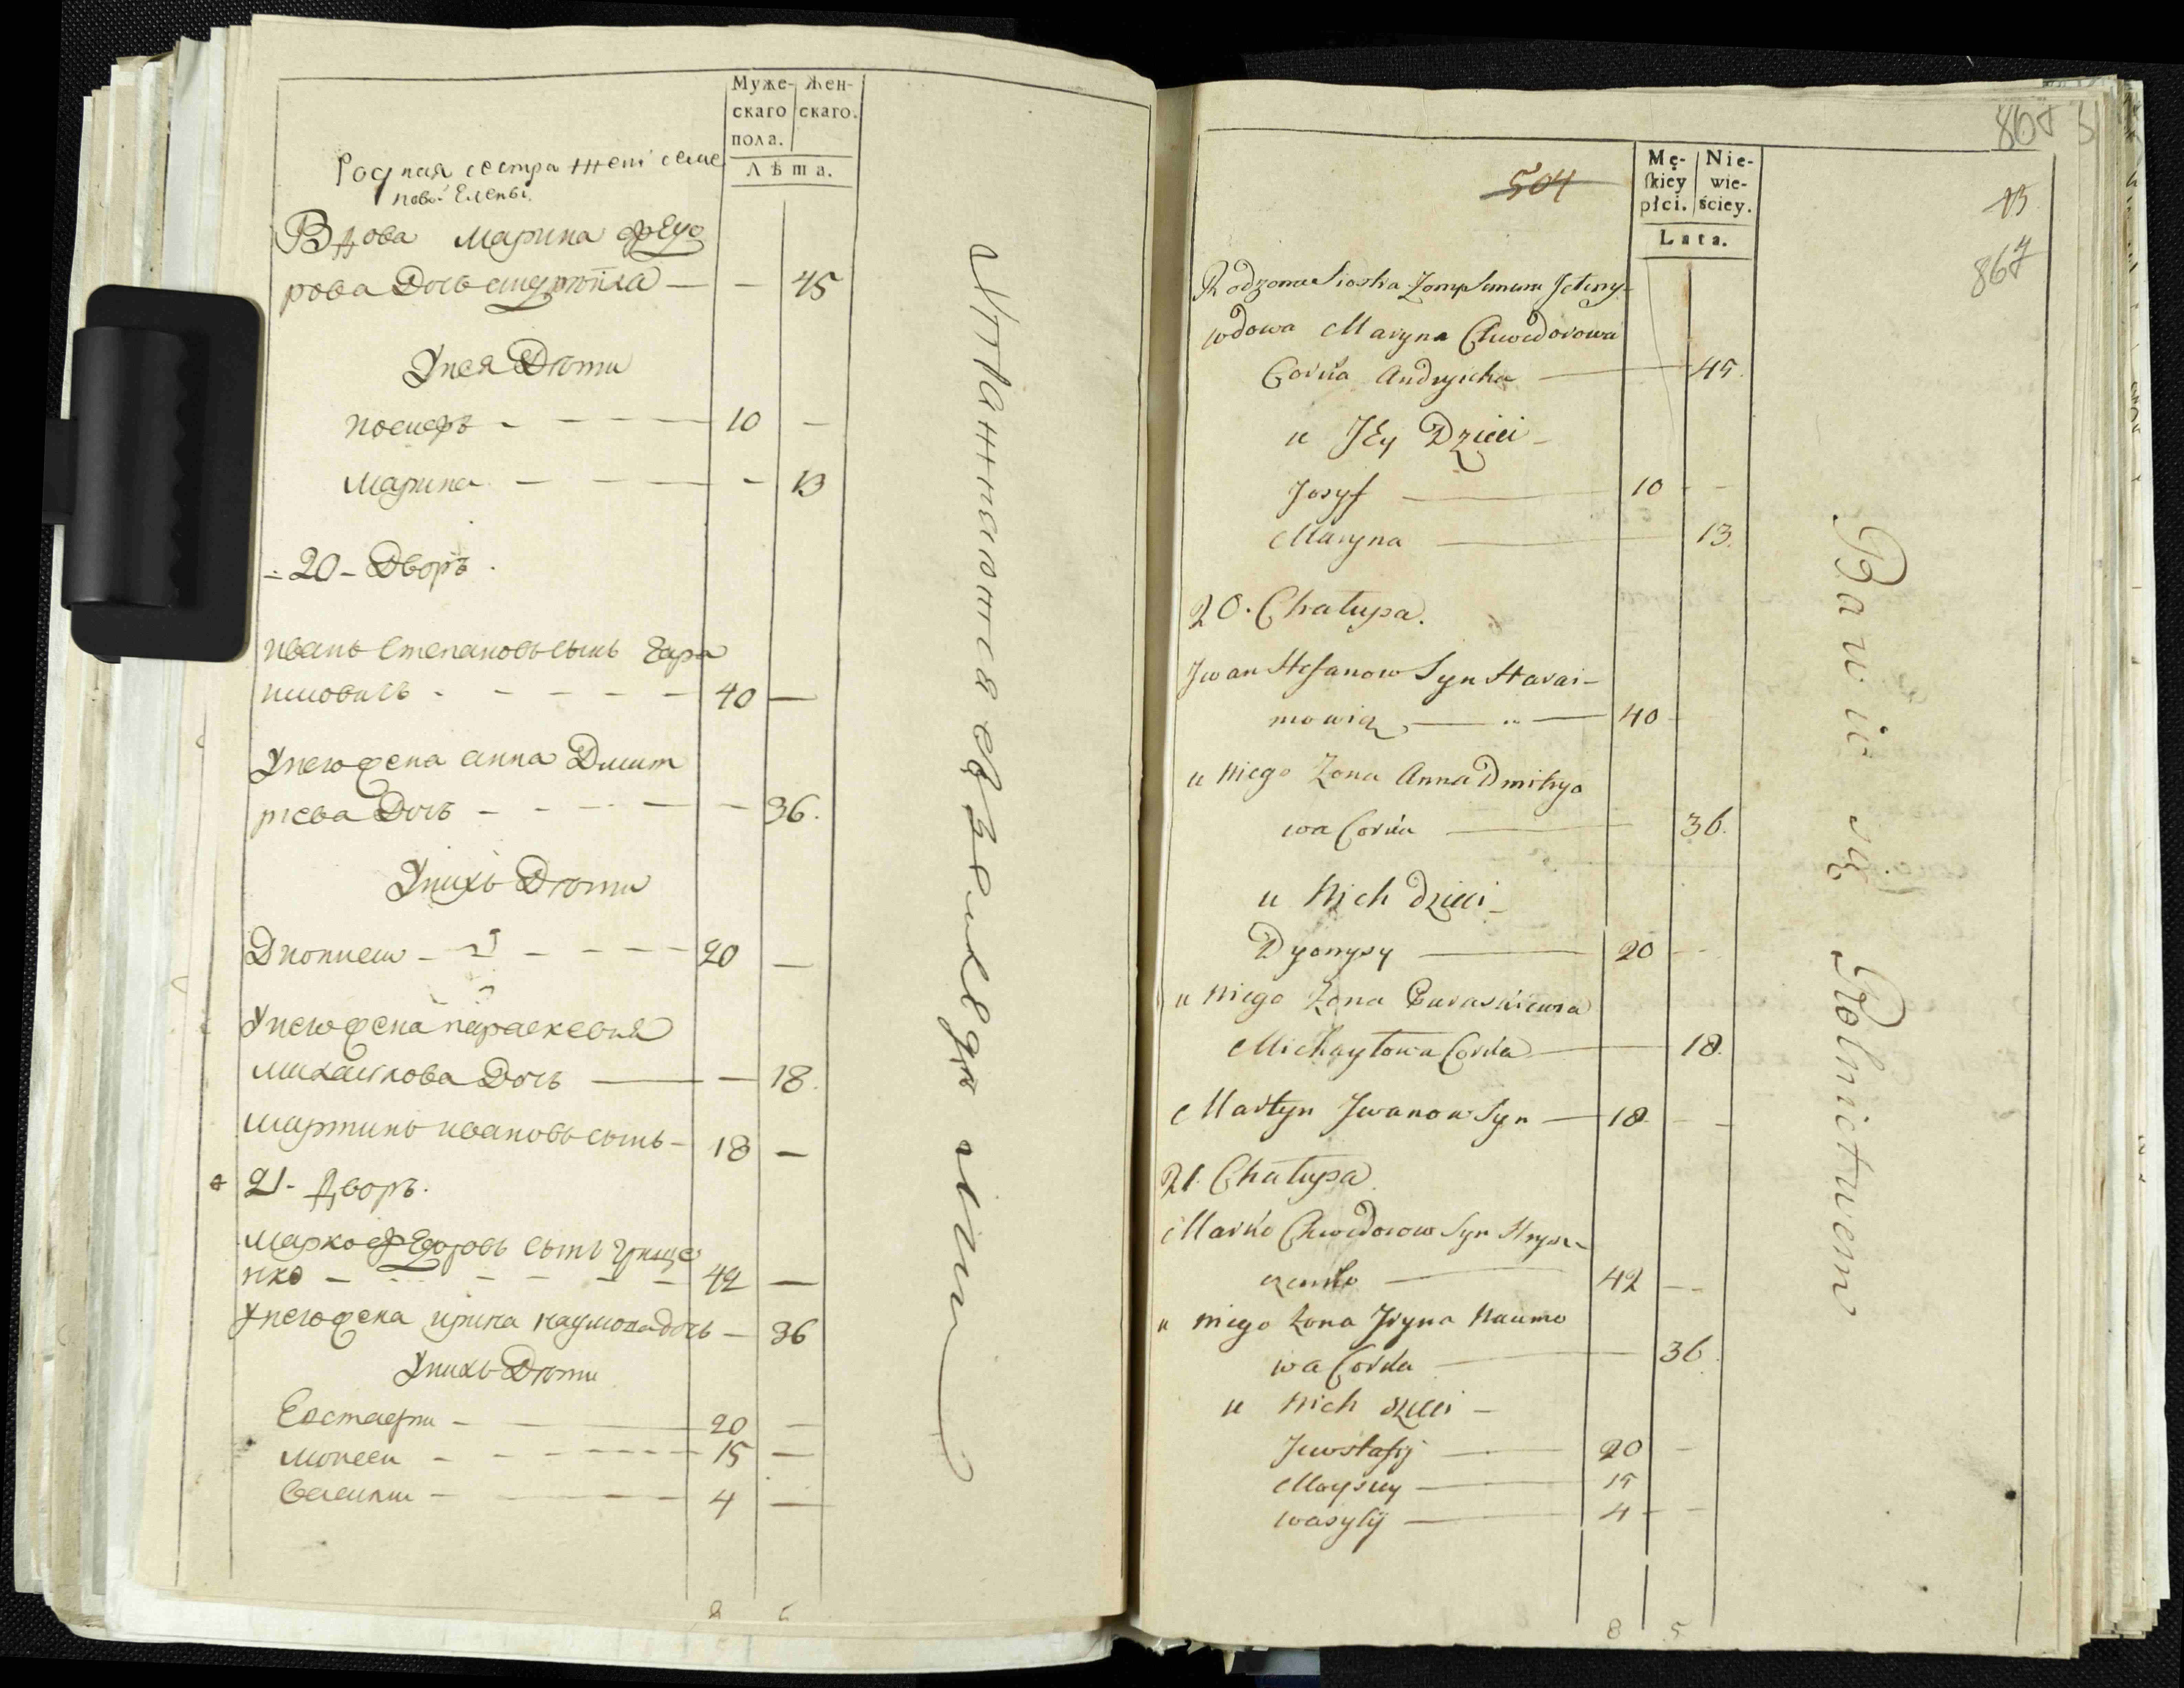 Муже- Жен-
скаго скаго.
пола.
Лѣта.
Родная сестра жени семе
новой Елены
Вдова Марина Федо
рова Дочь андрѣиха — — 45
Унея Дѣти
иосифъ — 10 —
марина — — 13
20 - Дворъ.
иванъ степановъ сынъ Гара
имовичъ — 40 —
Унего жена анна Дмит
риева Дочь — — 36.
Унихъ Дѣти
Дионисии — 20 —
Унего жена параскевия
михаилова Дочь — — 18.
мартинъ ивановъ сынъ — 18 —
21 - Дворъ.
марко Федоровъ сынъ грище
нко — 42 —
Унего жена ирина наумова дочь — 36
Унихъ Дѣти
Евстафии — 20 —
моисеи — 15 —
василии — 4 —
8
занимаются земледѣлием
867
504
Mę- Nie-
ſkiey wie-
płci. ściey.
Lata.
13
867
Rodzona Siostra Żony Semena Jeleny
wdowa Maryna Chwedorowa
Corka Andryicha — 45.
u Jey Dzieci —
Josyf — 10 —
Maryna — 13.
20. Chałupa.
Jwan Stefanow Syn Harai-
mowicz — 40 -
u niego Żona Anna Dmitryo
wa Corka — 36.
u Nich dzieci —
Dyonysy — 20 —
u niego Żona Paraskiewia
Michayłowa Corka — 18.
Martyn Jwanow Syn — 18 - —
21. Chałupa
Marko Chwedorow Syn Hrysz-
czenko — 42 —
u niego Żona Jryna Naumo
wa Corka — 36.
u Nich dzieci —
Jewstafij — 20 —
Moysey — 15
wasylij — 4 - —
8 5
Bawic są Rolnictwem